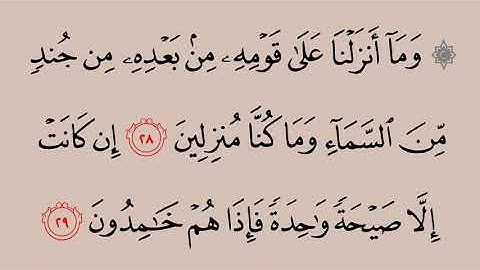 ۞ وَمَآ أَنزَلْنَا عَلَىٰ قَوْمِهِۦ مِنۢ بَعْدِهِۦ مِن جُندٍ
مِّنَ ٱلسَّمَآءِ وَمَا كُنَّا مُنزِلِينَ ٢٨ إِن كَانَتْ
إِلَّا صَيْحَةً وَٰحِدَةً فَإِذَا هُمْ خَٰمِدُونَ ٢٩